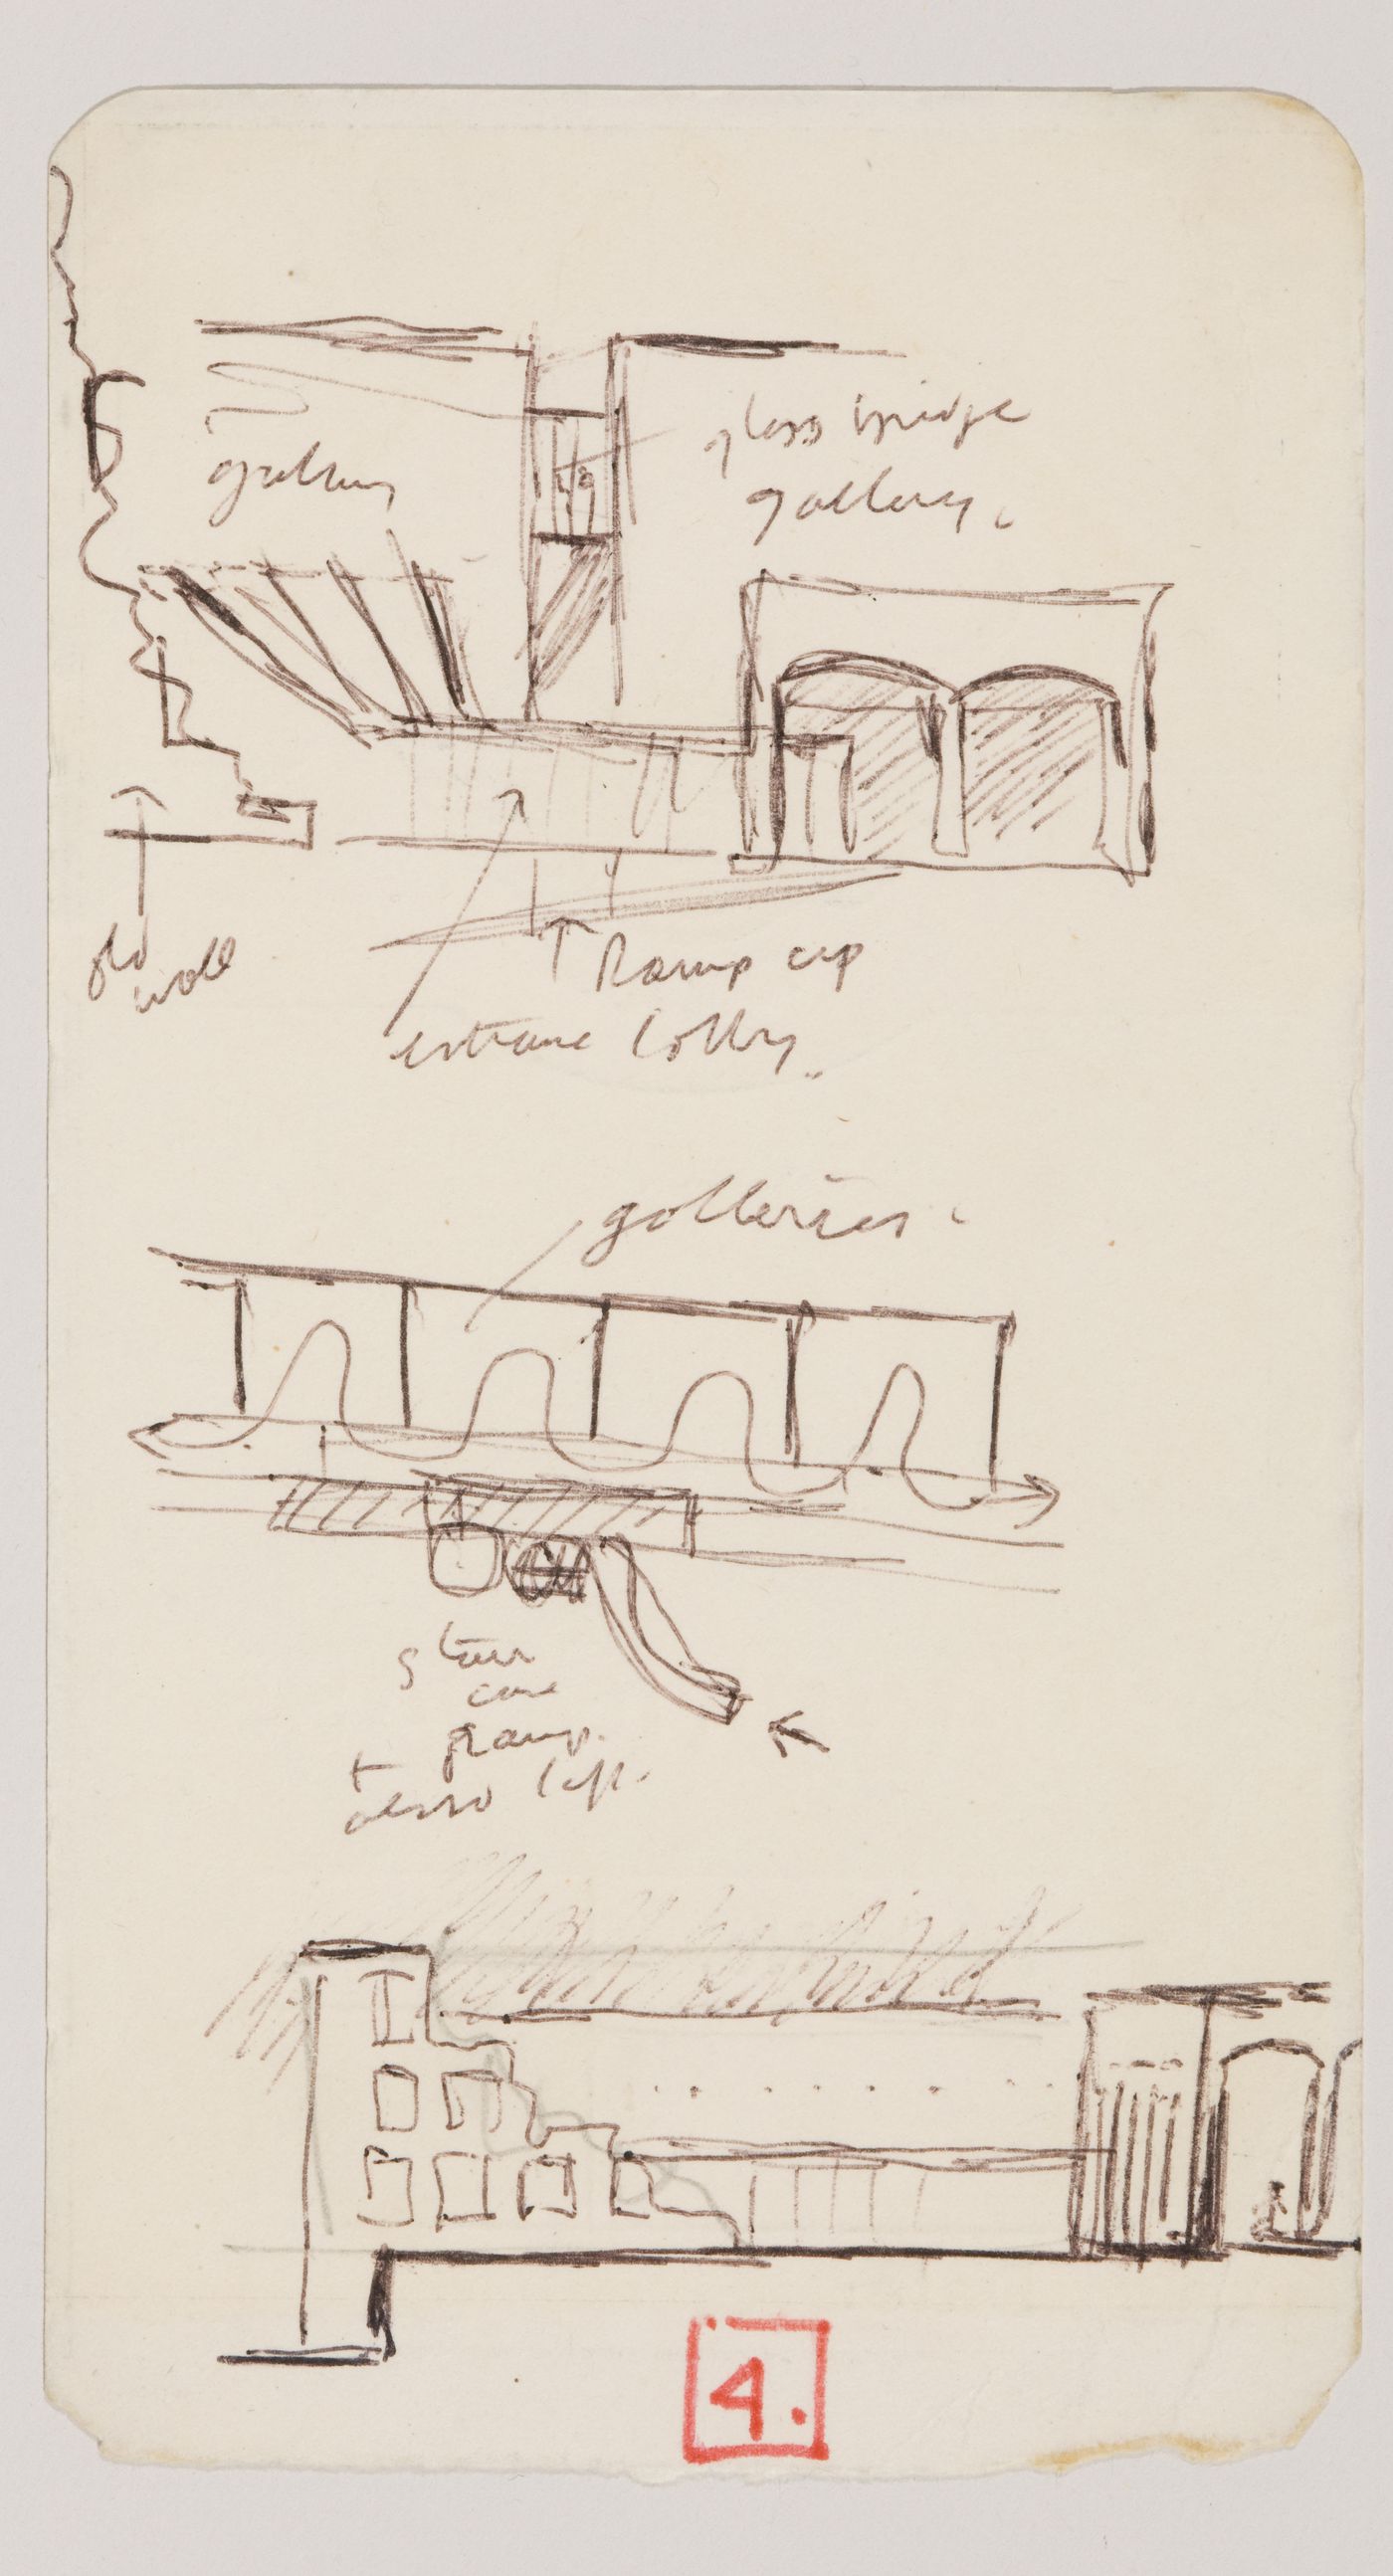 gallery
glass bridge
gallery.
old
wall
Ramp up
entrance lobby..
galleries.
stair
core
ramp.
+
also lift.
4.